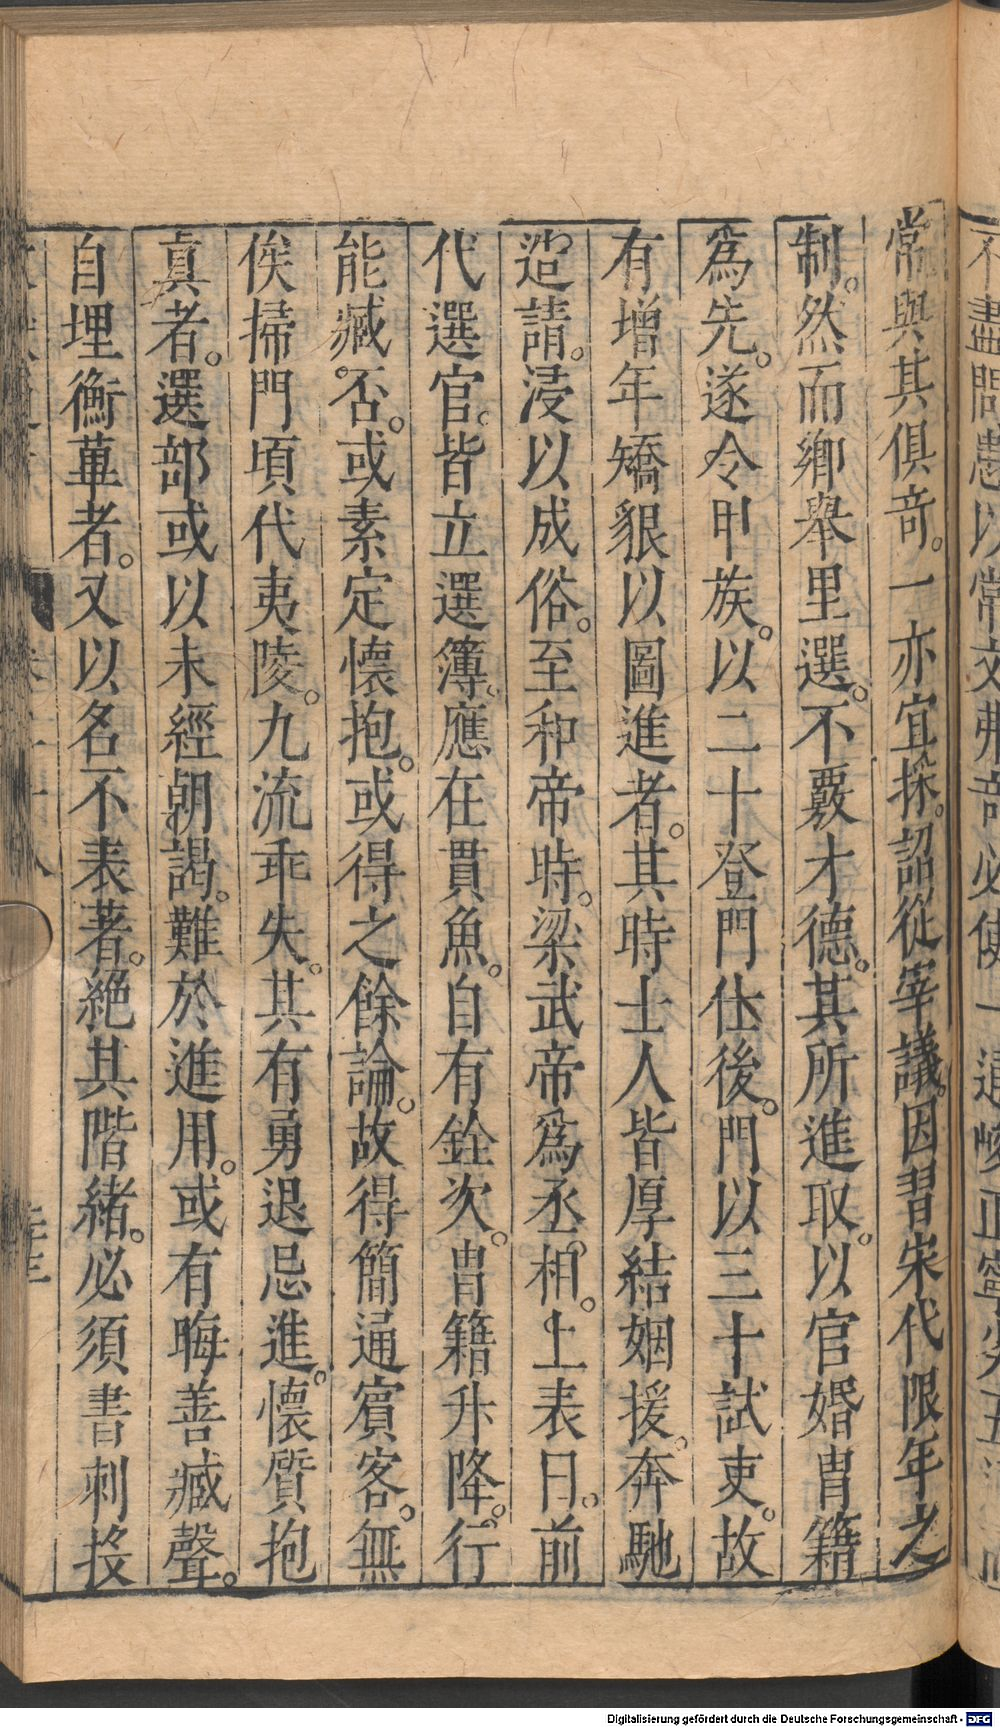 常與其俱奇。一亦宜採。詔從宰議。因習宋代限年之
制。然而鄉舉里選。不覈才德。其所進取。以官婚冑籍
爲先。遂令甲族。以二十登門仕後。門以三十試吏。故
有增年矯貌以圖進者。其時士人皆厚結姻援。奔馳
造請。浸以成俗。至和帝時。梁武帝爲丞相。上表曰。前
代選官。皆立選簿。應在貫魚。自有銓次。冑籍升降。行
能臧。否。或素定懷抱。或得之餘論。故得簡通賓客。無
俟掃門頃代夷陵。九流乖失。其有勇退忌進。懷質抱
真者。選部或以未經朝謁。難於進用。或有晦善臧聲。
自埋衡蓽者。又以名不表著。絕其階緒。必須書刺投
不盡問患以常文弗奇必使一通峻正寧劣五
Digitalisierung gefördert durch die Deutsche Forschungsgemeinschaft - DFG